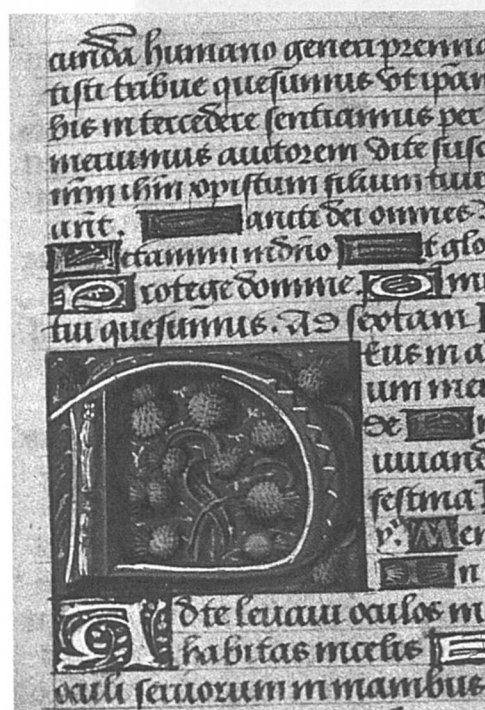 cunda humano generi premia
tisti tribue quesumus vt ipam
bis intercedere sentiamus per
meruimus auctorem vite susc
nrm ihm xpistum filium tuu
ant. Sancti dei omnes
Letamini in dno Et glo
Protege domine. Omni
tui quesumus. Ad sextam
Deus in a
um meu
Do
iuuand
festina
Men
In
Ad te leuaui oculos m
habitas in celis E
oculi seruorum in manibus